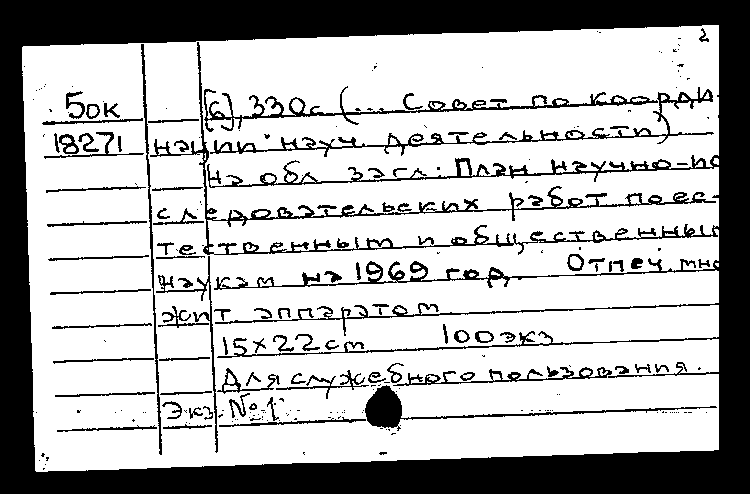 2
5ок [6], 330с (... Совет по коорди-
18271 нации науч. деятельности)
На обл загл: План научно-ис
следовательских работ по ес-
тественным и общественным
наукам на 1969 год. Отпеч. мно
жит. аппаратом
15×22cm 100экз
Для служебного пользования.
Экз. №1